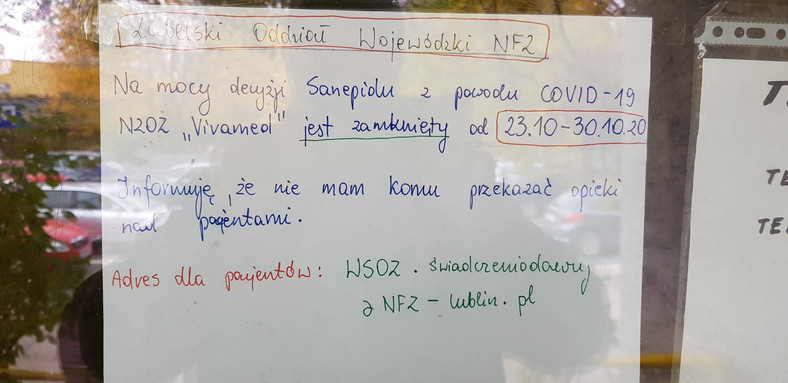 Lubelski Oddział Wojewódzki NFZ
Na mocy decyzji Sanepidu z powodu COVID-19
NZOZ „Vivamed" jest zamknięty od 23.10-30.10.20
Informuję, że nie mam komu przekazać opieki
nad pacjentami.
Adres dla pacjentów: WSOZ . świadczeniodawcy
@ NFZ - lublin. pl
T
TE
TE